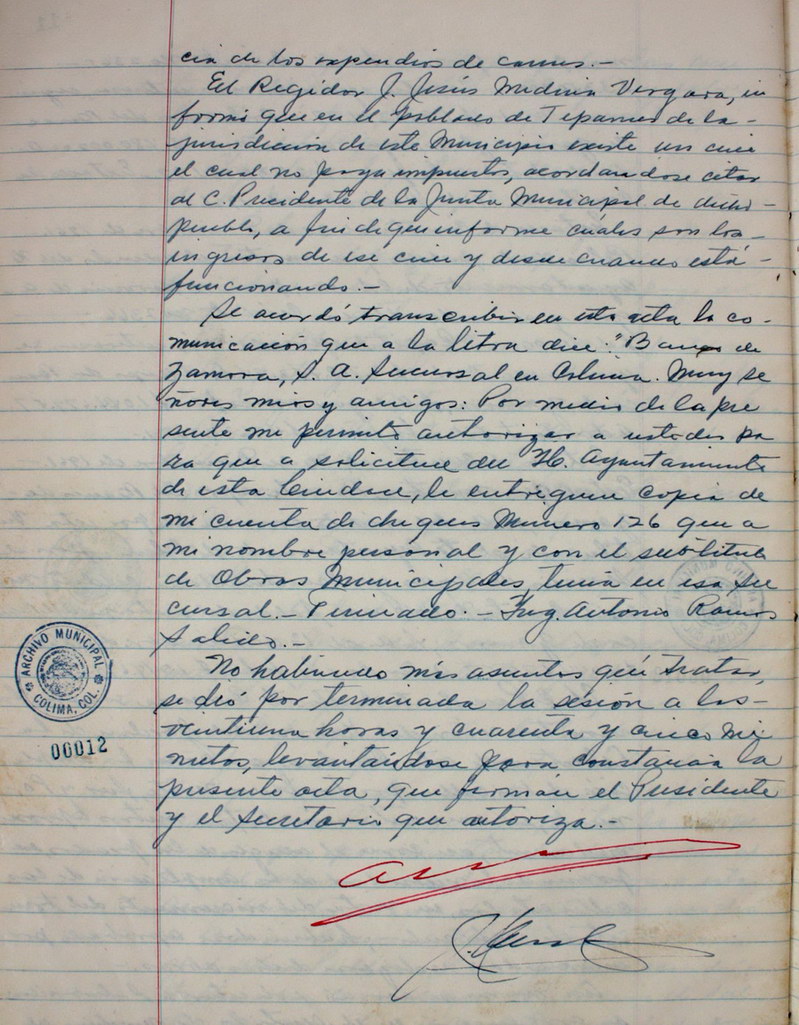 cia de los expendios de carnes.-
El Regidor J. Jesús Medina Vergara, in
formó que en el poblado de Tepames de la-
jurisdicción de este Municipio existe un cine
el cual no paga impuestos, acordandose citar
al C. Presidente de la Junta Municipal de dicho-
pueblo, a fin de que informe cuáles son los-
ingresos de ese cine y desde cuando está-
funcionando.-
Se acordó transcribir en esta acta la co-
municación que a la letra dice: "Banco de
Zamora, S. A. Sucursal en Colima. Muy se
ñores mios y amigos: Por medio de la pre
sente me permito autorizar a ustedes pa
ra que a solicitud del H. Ayuntamiento
de esta Ciudad, le entreguen copia de
mi cuenta de cheques Número 126 que a
mi nombre personal y con el subtitulo
de Obras Municipales, tenía en esa Su
cursal.- Firmado.- Ing. Antonio Ramos
Salido.-
No habiendo más asuntos que tratar,
se dió por terminada la sesión a las-
veintiuna horas y cuarenta y cinco mi
nutos, levantándose para constancia la
presente acta, que firman el Presidente
y el Secretario que autoriza.-
ARCHIVO MUNICIPAL
COLIMA, COL.
00012